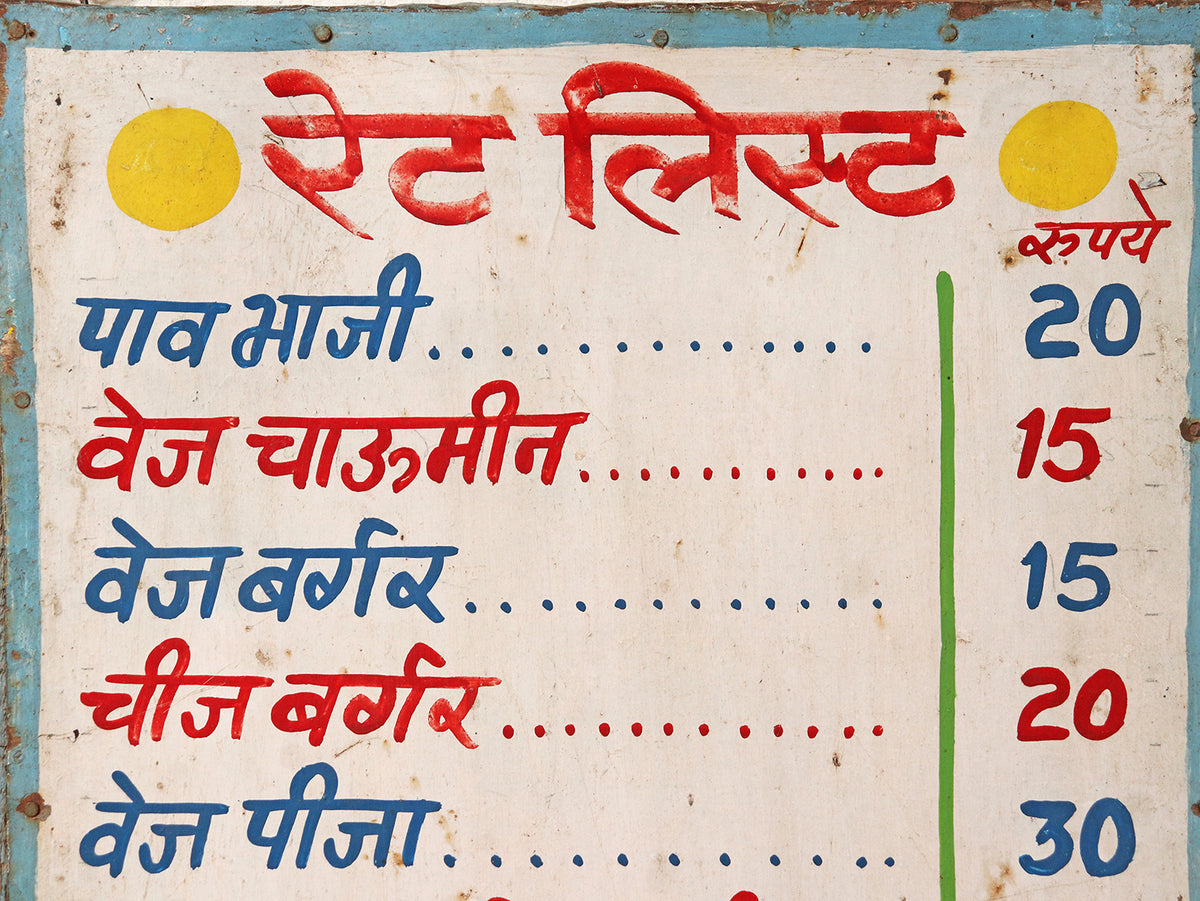 रेट लिस्ट
रुपये
पाव भाजी.............. 20
वेज चाऊमीन.......... 15
वेज बर्गर............ 15
चीज बर्गर............ 20
वेज पीजा........... 30